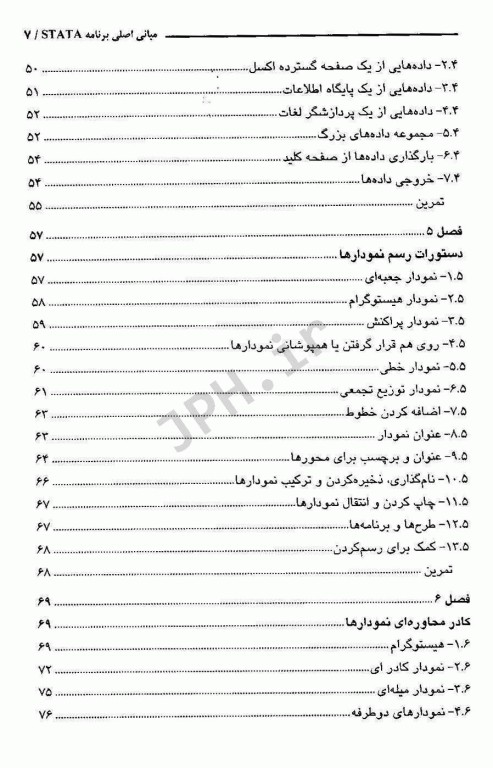 مبانی اصلی برنامه STATA / ۷
۲.۴- داده‌هایی از یک صفحه گسترده اکسل ........ ۵۰
۳.۴- داده‌هایی از یک پایگاه اطلاعات ........ ۵۱
۴.۴- داده‌هایی از یک پردازشگر لغات ........ ۵۲
۵.۴- مجموعه داده‌های بزرگ ........ ۵۲
۶.۴- بارگذاری داده‌ها از صفحه کلید ........ ۵۴
۷.۴- خروجی داده‌ها ........ ۵۴
تمرین ........ ۵۵
فصل ۵ ........ ۵۷
دستورات رسم نمودارها ........ ۵۷
۱.۵- نمودار جعبه‌ای ........ ۵۷
۲.۵- نمودار هیستوگرام ........ ۵۸
۳.۵- نمودار پراکنش ........ ۵۹
۴.۵- روی هم قرار گرفتن یا همپوشانی نمودارها ........ ۶۰
۵.۵- نمودار خطی ........ ۶۰
۶.۵- نمودار توزیع تجمعی ........ ۶۱
۷.۵- اضافه کردن خطوط ........ ۶۲
۸.۵- عنوان نمودار ........ ۶۳
۹.۵- عنوان و برچسب برای محورها ........ ۶۴
۱۰.۵- نام‌گذاری، ذخیره‌کردن و ترکیب نمودارها ........ ۶۶
۱۱.۵- چاپ کردن و انتقال نمودارها ........ ۶۷
۱۲.۵- طرح‌ها و برنامه‌ها ........ ۶۷
۱۳.۵- کمک برای رسم‌کردن ........ ۶۸
تمرین ........ ۶۸
فصل ۶ ........ ۶۹
کادر محاوره‌ای نمودارها ........ ۶۹
۱.۶- هیستوگرام ........ ۶۹
۲.۶- نمودار کادر ای ........ ۷۲
۳.۶- نمودار میله‌ای ........ ۷۵
۴.۶- نمودارهای دوطرفه ........ ۷۶
JPH.ir